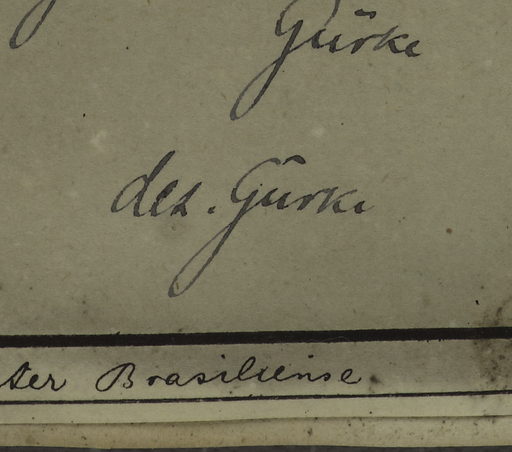 Gürke
des. Gürke
ter Brasiliense